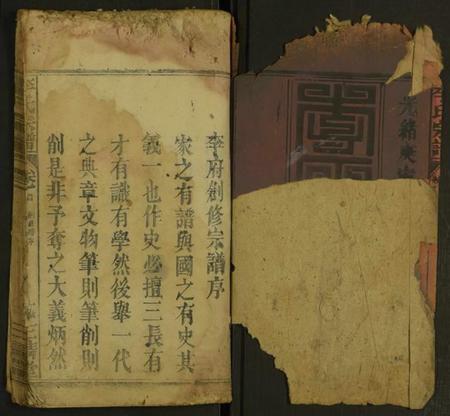 李府創修宗譜序
家之有譜與國之有史其
義一也作史必擅三長有
才有識有學然後舉一代
之典章文物筆則筆削則
削是非予奪之大義炳然
李氏宗譜
光緒庚